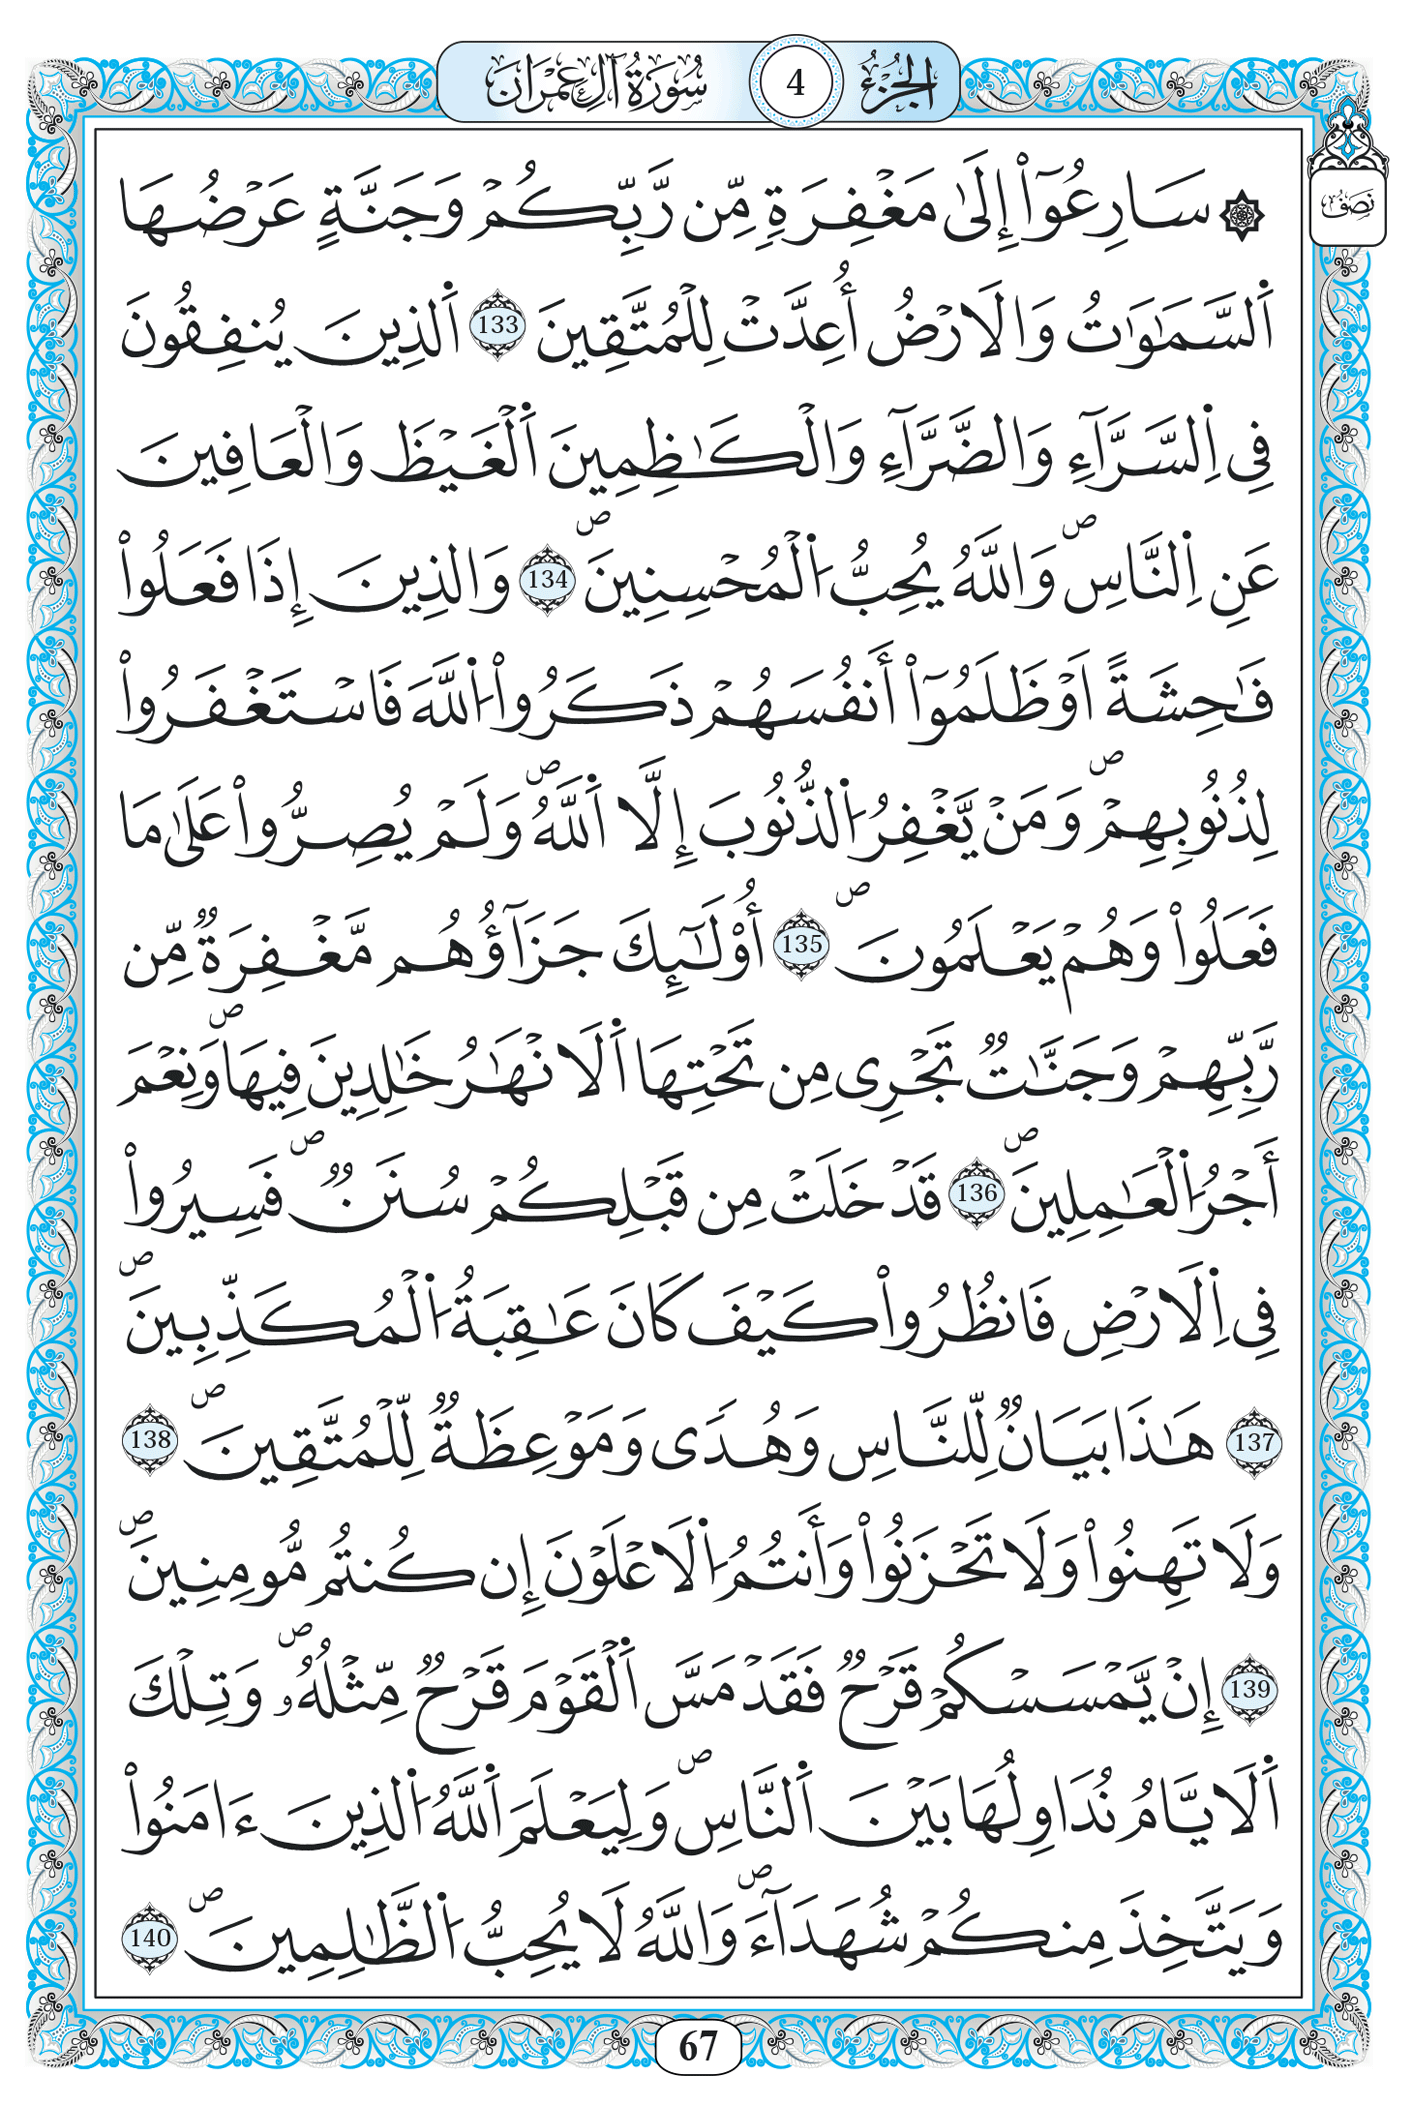 سُورَةُ آلِ عِمْرَانَ 4 الجُزْءُ
نِصْفُ
۞ سَارِعُوٓاْ إِلَىٰ مَغْفِرَةٖ مِّن رَّبِّكُمْ وَجَنَّةٍ عَرْضُهَا
اَ۬لسَّمَٰوَٰتُ وَالَارْضُ أُعِدَّتْ لِلْمُتَّقِينَ 133 اَ۬لذِينَ يُنفِقُونَ
فِي اِ۬لسَّرَّآءِ وَالضَّرَّآءِ وَالْكَٰظِمِينَ اَ۬لْغَيْظَ وَالْعَافِينَ
عَنِ اِ۬لنَّاسِۖ وَاللَّهُ يُحِبُّ اُ۬لْمُحْسِنِينَۖ 134 وَالذِينَ إِذَا فَعَلُواْ
فَٰحِشَةً اَوْ ظَلَمُوٓاْ أَنفُسَهُمْ ذَكَرُواْ اُ۬للَّهَ فَاسْتَغْفَرُواْ
لِذُنُوبِهِمْۖ وَمَنْ يَّغْفِرُ اُ۬لذُّنُوبَ إِلَّا اَ۬للَّهُۖ وَلَمْ يُصِرُّواْ عَلَىٰ مَا
فَعَلُواْ وَهُمْ يَعْلَمُونَۖ 135 أُوْلَٰٓئِكَ جَزَآؤُهُم مَّغْفِرَةٞ مِّن
رَّبِّهِمْ وَجَنَّٰتٞ تَجْرِي مِن تَحْتِهَا اَ۬لَانْهَٰرُ خَٰلِدِينَ فِيهَاۖ وَنِعْمَ
أَجْرُ اُ۬لْعَٰمِلِينَۖ 136 قَدْ خَلَتْ مِن قَبْلِكُمْ سُنَنٞۖ فَسِيرُواْ
فِي اِ۬لَارْضِ فَانظُرُواْ كَيْفَ كَانَ عَٰقِبَةُ اُ۬لْمُكَذِّبِينَۖ
137 هَٰذَا بَيَانٞ لِّلنَّاسِ وَهُدىٗ وَمَوْعِظَةٞ لِّلْمُتَّقِينَۖ 138
وَلَا تَهِنُواْ وَلَا تَحْزَنُواْ وَأَنتُمُ اُ۬لَاعْلَوْنَ إِن كُنتُم مُّومِنِينَۖ
139 إِنْ يَّمْسَسْكُمْ قَرْحٞ فَقَدْ مَسَّ اَ۬لْقَوْمَ قَرْحٞ مِّثْلُهُۥۖ وَتِلْكَ
اَ۬لَايَّامُ نُدَاوِلُهَا بَيْنَ اَ۬لنَّاسِۖ وَلِيَعْلَمَ اَ۬للَّهُ اُ۬لذِينَ ءَامَنُواْ
وَيَتَّخِذَ مِنكُمْ شُهَدَآءَۖ وَاللَّهُ لَا يُحِبُّ اُ۬لظَّٰلِمِينَۖ 140
67